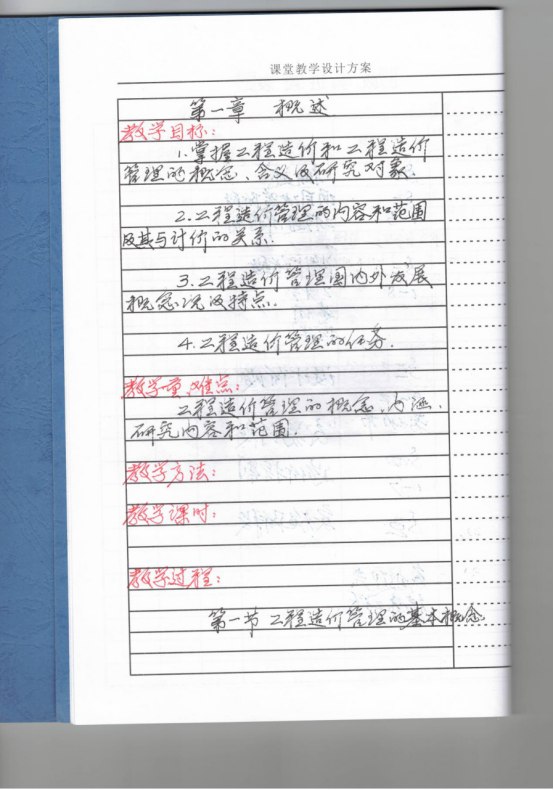 课堂教学设计方案
第一章 概述
教学目标:
1.掌握工程造价和工程造价
管理的概念、含义及研究对象.
2.工程造价管理的内容和范围
及其与计价的关系.
3.工程造价管理国内外发展
概念况及特点.
4.工程造价管理的任务.
教学重、难点:
工程造价管理的概念、内涵.
研究内容和范围.
教学方法:
教学课时:
教学过程:
第一节 工程造价管理的基本概念